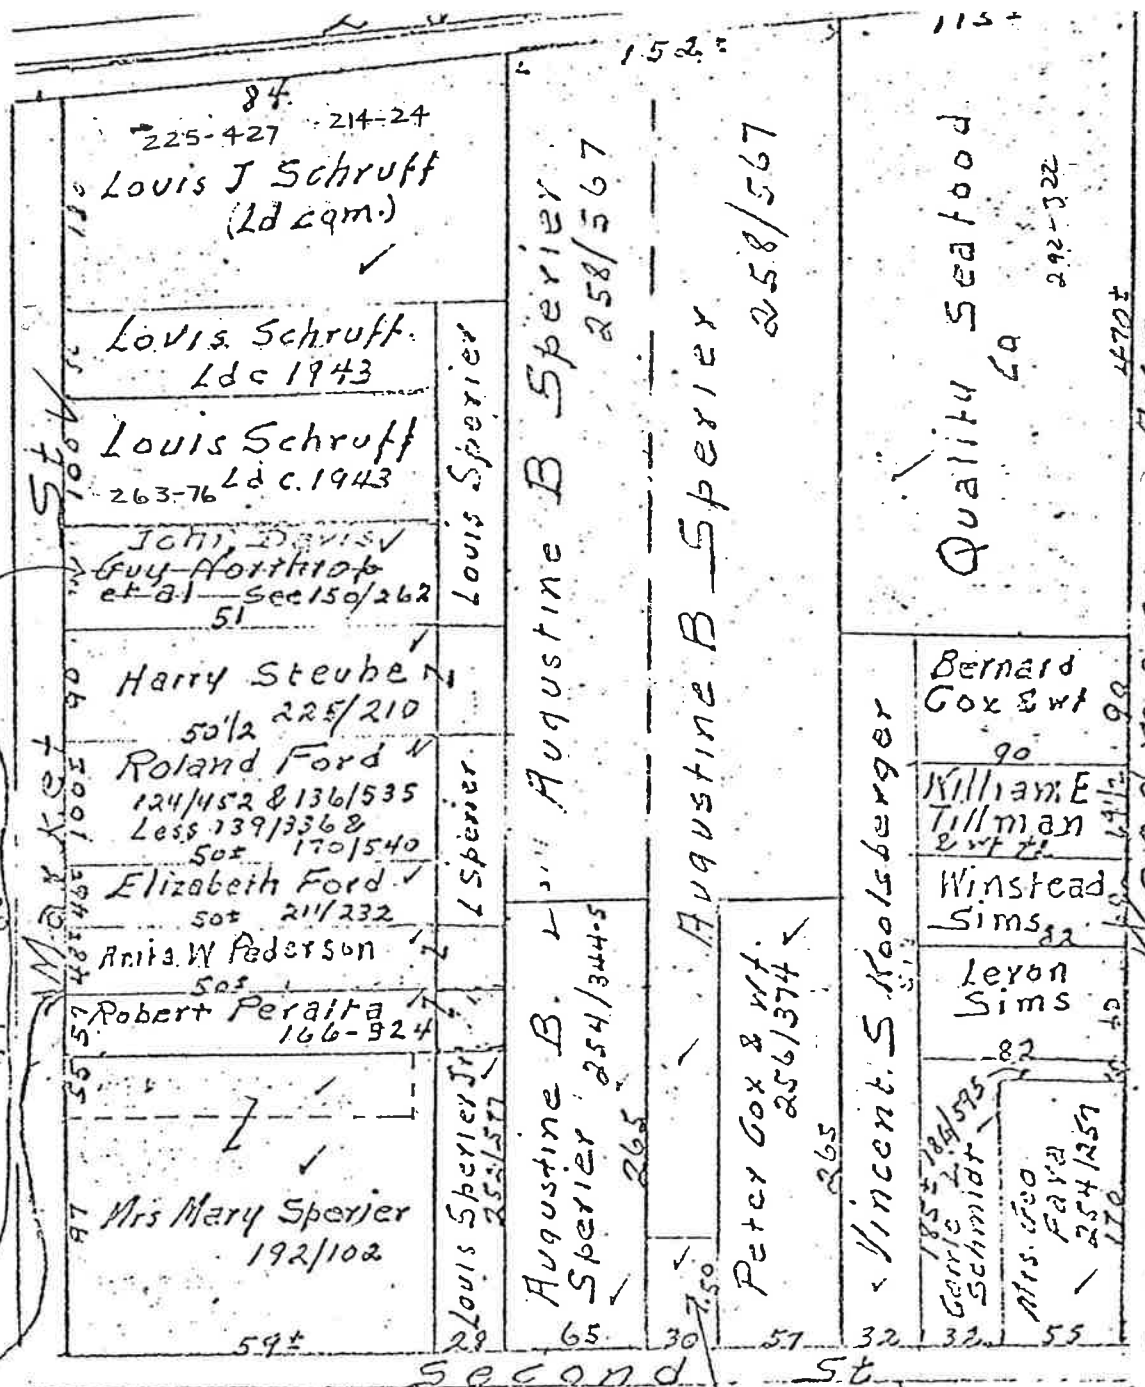 84.
225-427 214-24
Louis J Schruff
(Ld cqm.)
180
Louis Schruff.
Ld c 1943
75
Louis Schruff
263-76 Ld c. 1943
100
John Davis
Guy Northrop
et al See 150/262
51
Harry Steube
225/210
50 1/2
90
Roland Ford
124/452 & 136/535
Less 139/336 &
170/540
50±
100.5
Elizabeth Ford
50± 211/232
Anita W Pederson
50±
48
Robert Peralta
166-924
57
55
Mrs Mary Sperier
192/102
97
59±
Market St
Louis Sperier
L Sperier
Louis Sperier Jr
252/597
28
152±
Augustine B Sperier
258/567
Augustine B.
Sperier 254/344-5
265
65
Augustine B Sperier
258/567
50
30
Peter Cox & Wf.
256/374
265
57
115±
Quality Seafood
Co
292-322
470±
Vincent S Koolsberger
32
Bernard
Cox & wf
90
90
William E
Tillman
& wf
64 1/2
Winstead
Sims
82
Levon
Sims
82
185± 186/595
Carrie L
Schmidt
32
Mrs. Geo
Fava
254/257
170
55
Second St